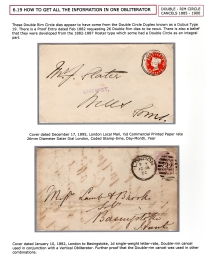 6.19 HOW TO GET ALL THE INFORMATION IN ONE OBLITERATOR
DOUBLE - RIM CIRCLE
CANCELS 1885 - 1900
These Double Rim Circle dies appear to have come from the Double Circle Duplex known as a Dubus Type
19. There is a Proof Entry dated Feb 1882 requesting 26 Double Rim dies to be made. There is also a belief
that they were developed from the 1882-1887 Hooter type which some had a Double Circle as an integral
part.
Slater
Wells
Cover dated December 17, 1885, London Local Mail, ½d Commercial Printed Paper rate
20mm Diameter Dated Dial London, Coded Stamp-time, Day-Month, Year
Lamb & Brook
Cover dated January 10, 1882, London to Basingstoke, 1d single-weight letter-rate, Double-rim cancel
used in conjunction with a Vertical Obliterator. Further proof that the Double-rim cancel was used in other
combinations.